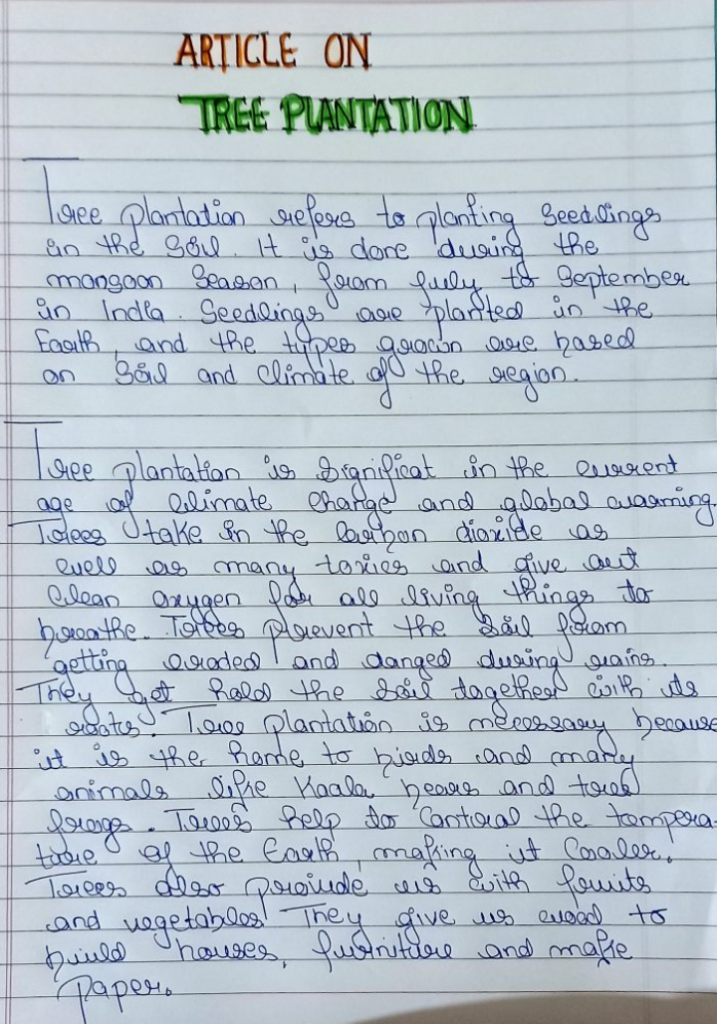 ARTICLE ON
TREE PLANTATION
Tree plantation refers to planting seedlings
in the soil. It is done during the
monsoon season, from july to September
in India. Seedlings are planted in the
Earth, and the types grown are based
on soil and climate of the region.
Tree plantation is significat in the current
age of climate change and global warming.
Trees take in the carbon dioxide as
well as many toxics and give out
clean oxygen for all living things to
breathe. Trees prevent the soil from
getting eroded and danged during rains.
They get hold the soil together with its
roots. Tree plantation is necessary because
it is the home to birds and many
animals like Koala bears and tree
frongs. Trees help to control the tempera-
ture of the Earth, making it cooler.
Trees also provide us with fruits
and vegetables They give us wood to
build houses, furniture and make
paper.